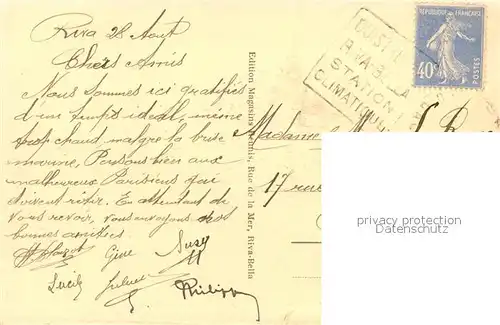 Riva 28 Aout
Chers Amis
Nous sommes ici gratifiés
d'un temps ideal, même
trop chaud malgre la brise
marine. Pensons bien aux
malheureux Parisiens qui
doivent rotir. En attendant de
vous revoir, vous envoyons nos
bonnes amities.
Suzy
Lucie
Philippe
Edition Magasins Réunis, Rue de la Mer, Riva-Bella
RIVA-BELLA
STATION
CLIMATIQUE
REPUBLIQUE FRANÇAISE
40c
POSTES
Madame
17 rue
privacy protection
Datenschutz